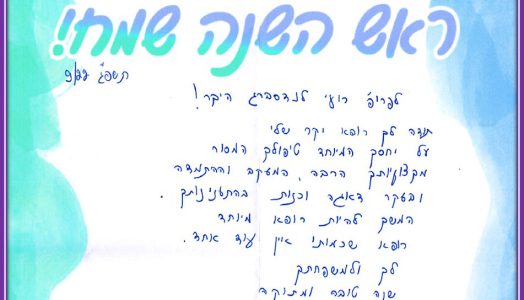 ראש השנה שמח!
תשפ"ג 9/22
לפרופ' רועי לנדסברג היקר!
תודה לך רופא יקר שלי
על יחסך המיוחד טיפולך המסור
מקצועיותך הרבה, המעקב וההתמדה
ובעיקר דאגה וכנות בהתעניינותך
המשך להיות רופא מיוחד
רופא שכמותך אין עוד אחד.
לך ולמשפחתך
שנה טובה ומתוקה